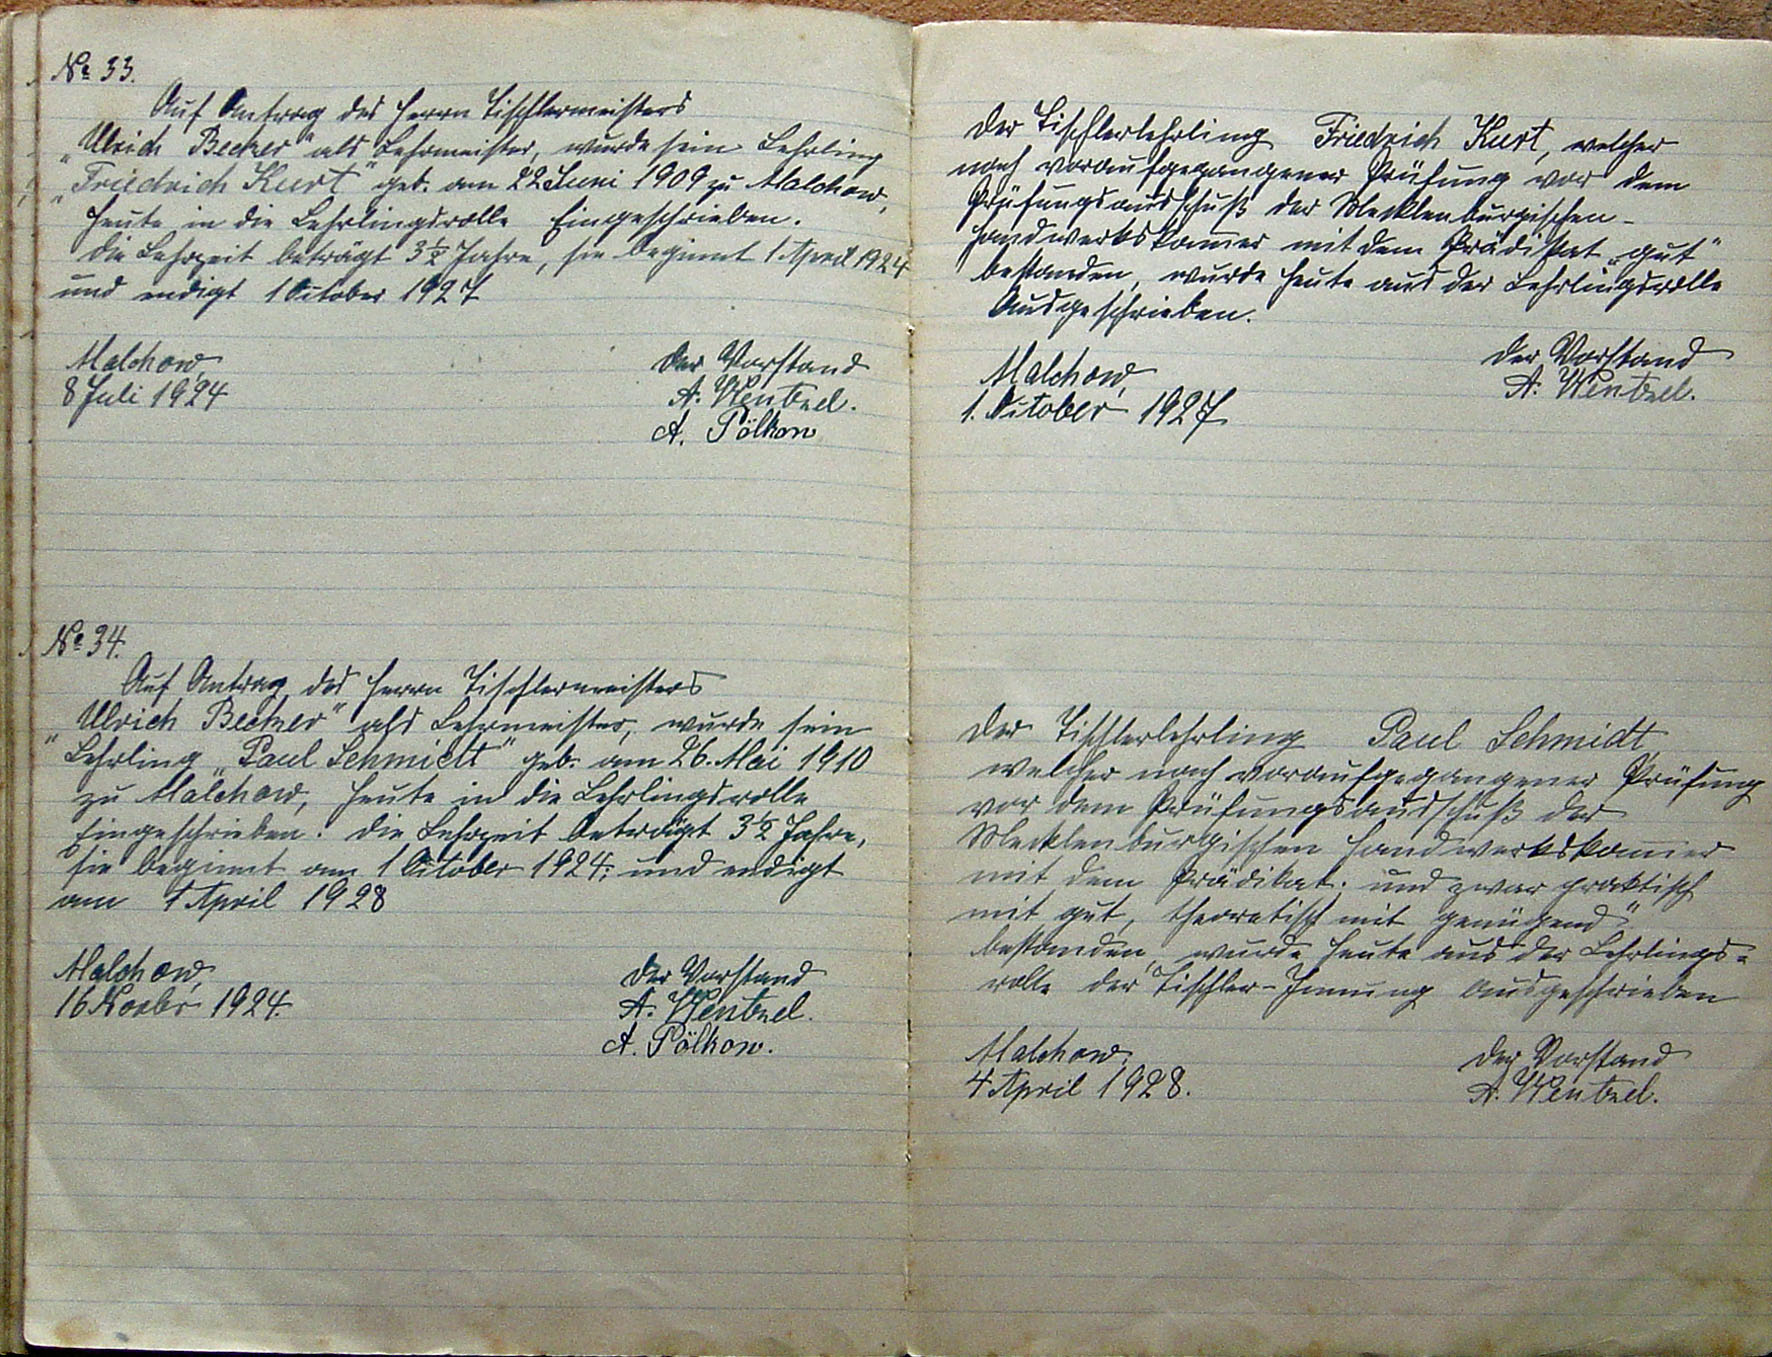 No 33.
Auf Antrag des Herrn Tischlermeisters
„Ulrich Becker" als Lehrmeister, wurde sein Lehrling
„Friedrich Kurt" geb. am 22 Juni 1909 zu Malchow,
heute in die Lehrlingsrolle Eingeschrieben.
Die Lehrzeit beträgt 3½ Jahre, sie beginnt 1 April 1924
und endigt 1 October 1927
Malchow,
8 Juli 1924
Der Vorstand
A. Wentzel.
A. Pölkow
No 34.
Auf Antrag des Herrn Tischlermeisters
„Ulrich Becker" als Lehrmeister, wurde sein
Lehrling „Paul Schmidt" geb. am 26. Mai 1910
zu Malchow, heute in die Lehrlingsrolle
Eingeschrieben. Die Lehrzeit beträgt 3½ Jahre,
sie beginnt am 1 October 1924; und endigt
am 1 April 1928
Malchow,
16 Novbr 1924.
Der Vorstand
A. Wentzel.
A. Pölkow.
Der Tischlerlehrling Friedrich Kurt, welcher
nach voraufgegangener Prüfung vor dem
Prüfungsausschuß der Mecklenburgischen-
Handwerkskam̅er mit dem Prädikat „gut"
bestanden, wurde heute aus der Lehrlingsrolle
Ausgeschrieben.
Malchow,
1. October 1927
Der Vorstand
A. Wentzel.
Der Tischlerlehrling Paul Schmidt,
welcher nach voraufgegangener Prüfung
vor dem Prüfungsausschuß der
Mecklenburgischen Handwerkskam̅er
mit dem Prädikat; und zwar praktisch
mit gut, theoretisch mit genügend"
bestanden, wurde heute aus der Lehrlings=
rolle der Tischler-Innung Ausgeschrieben
Malchow.
4 April 1928.
Der Vorstand
A. Wentzel.